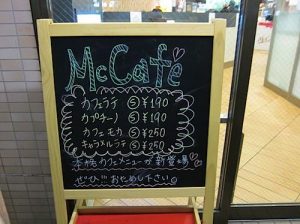 McCafé
カフェラテ Ⓢ ¥190
カプチーノ Ⓢ ¥190
カフェモカ Ⓢ ¥250
キャラメルラテ Ⓢ ¥250
本格カフェメニューが新登場♡
ぜひおためし下さい。